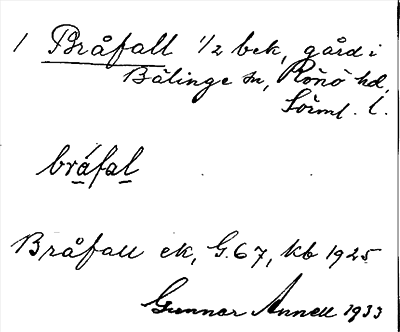 1 Bråfall 1/2 bek, gård i
Bälinge sn, Rönö hd,
Sörml. l.
bråfal
Bråfall ek, G.67, kb 1925
Gunnar Annell 1933